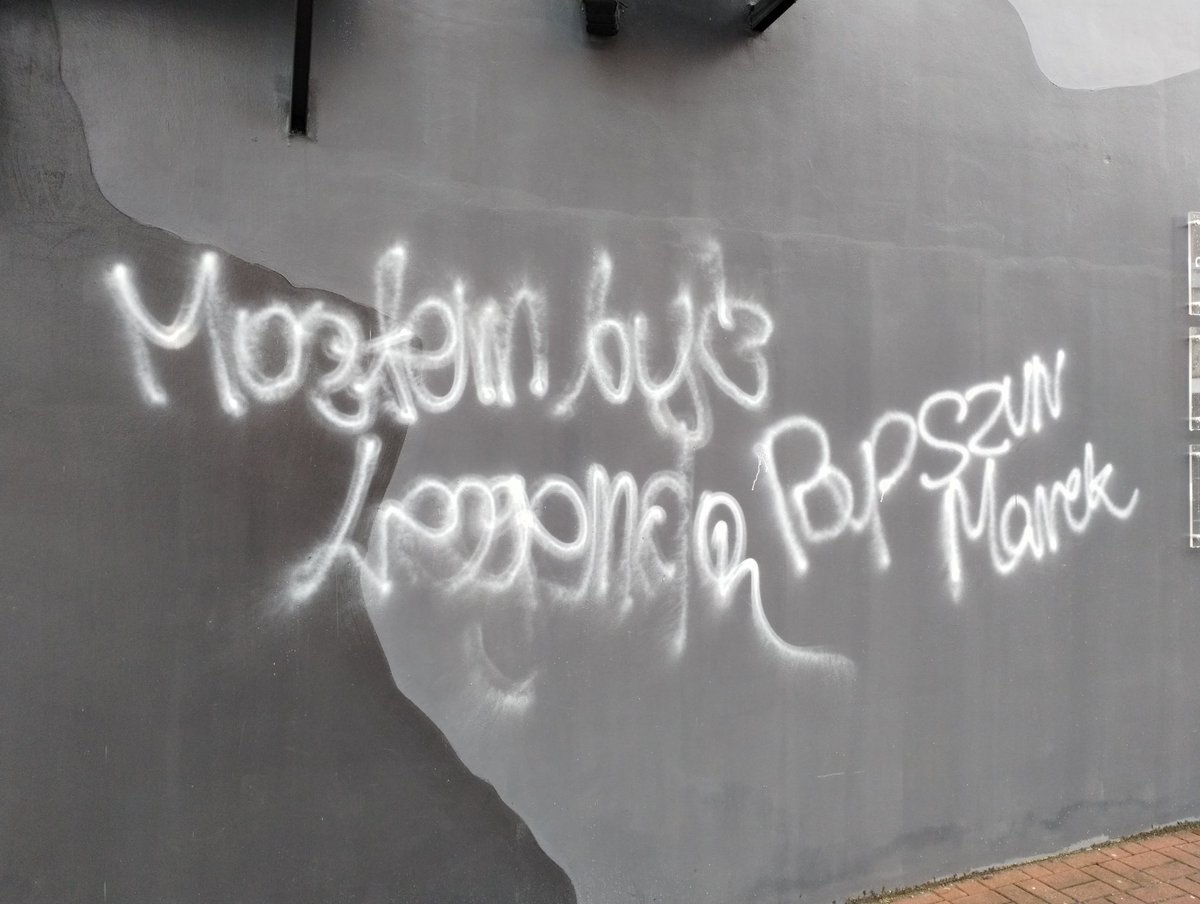 Mogłem być
Legendą
PaPSZUN
Marek